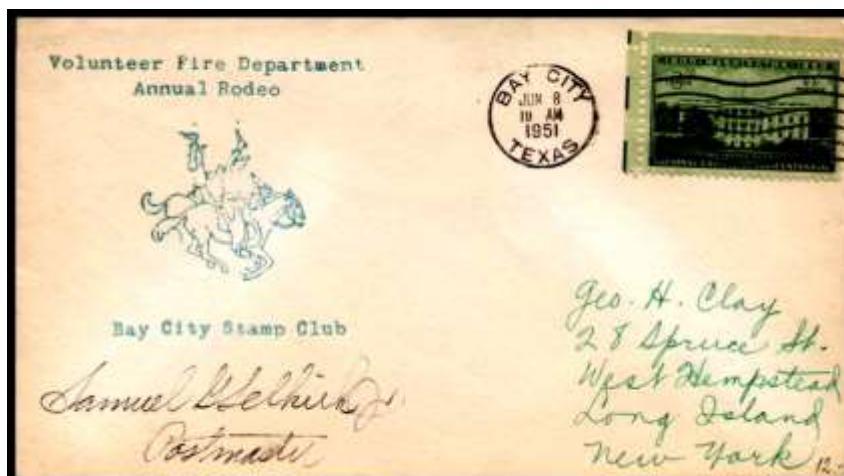 Volunteer Fire Department
Annual Rodeo
BAY CITY
JUN 8
10 AM
1951
TEXAS
Bay City Stamp Club
Samuel G Selkirk Jr.
Postmaster
Geo. H. Clay
28 Spruce St.
West Hempstead
Long Island
New York
12.-